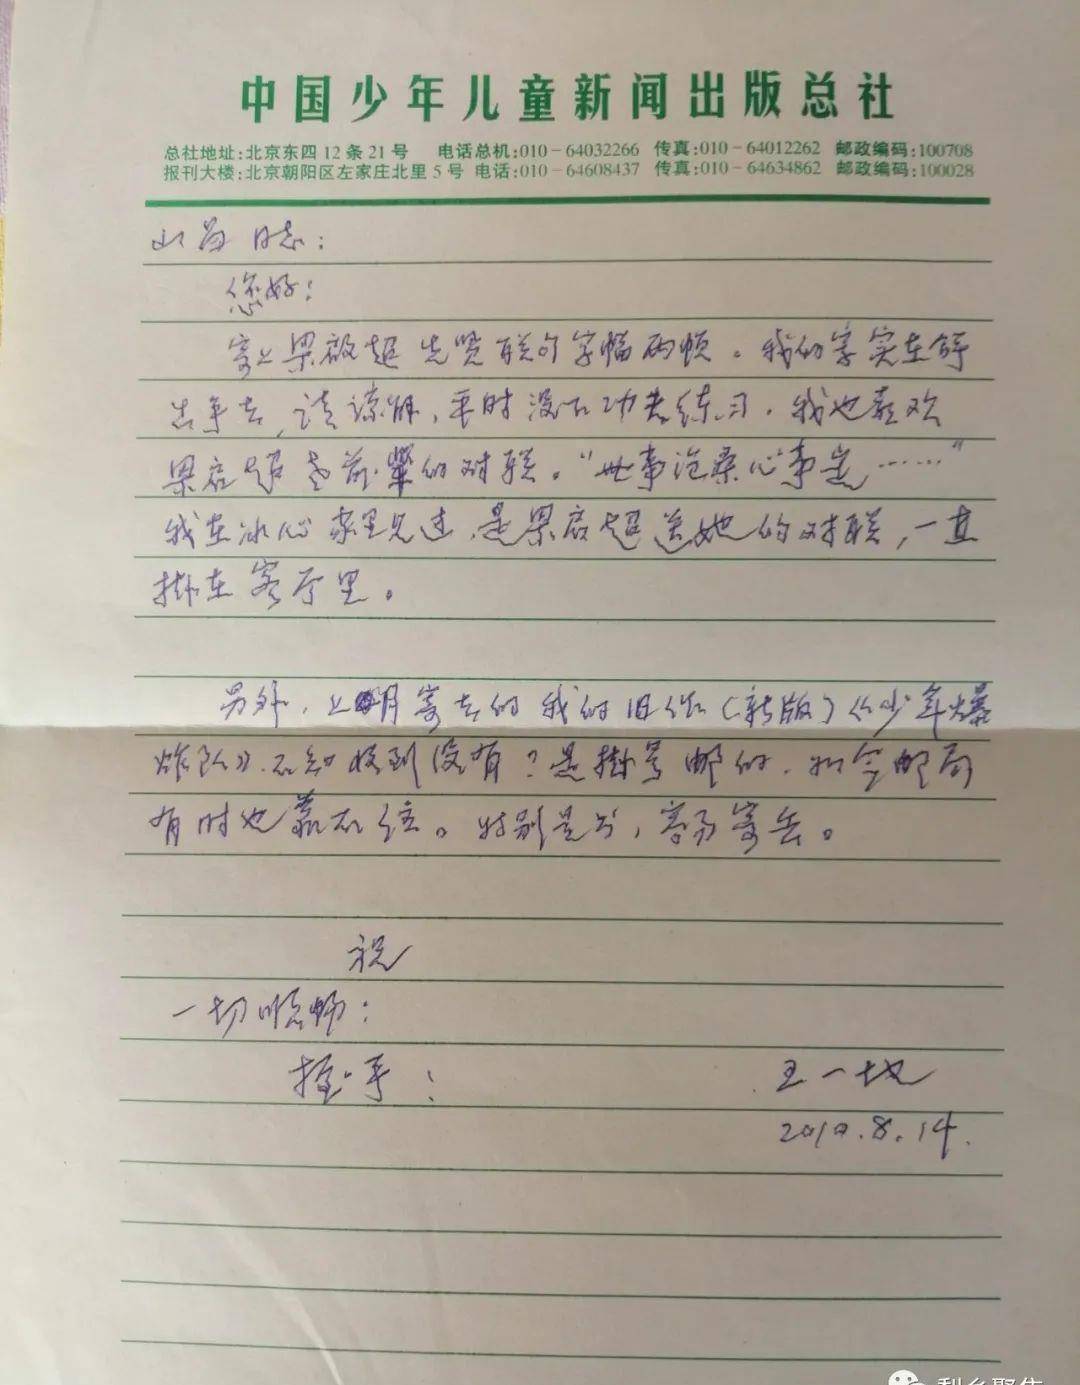 中国少年儿童新闻出版总社
总社地址:北京东四12条21号 电话总机:010-64032266 传真:010-64012262 邮政编码:100708
报刊大楼:北京朝阳区左家庄北里5号 电话:010-64608437 传真:010-64634862 邮政编码:100028
山 同志:
您好!
寄上梁启超先贤联句字幅两帧。我的字实在
出手去,请谅解,平时没下功夫练习。我也喜欢
梁启超老前辈的对联。“世事沧桑心事定,……”
我在冰心家里见过,是梁启超送她的对联,一直
挂在客厅里。
另外,上月寄去的我的旧作(新版)《少年爆
炸队》不知收到没有?是挂号邮的,如今邮局
有时也靠不住。特别是书,容易寄丢。
祝
一切顺畅!
握手!
王一地
2010.8.14.
梨乡聚焦